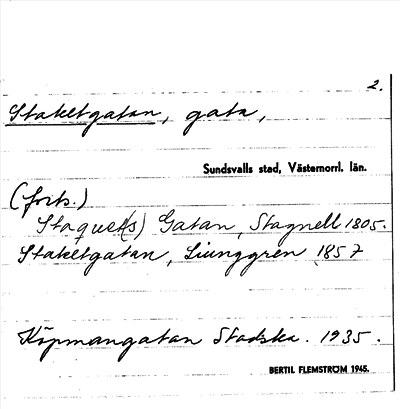 2.
Staketgatan, gata,
Sundsvalls stad, Västernorrl. län.
(forts.)
Staquet(s) Gatan, Stagnell 1805.
Staketgatan, Ljunggren 1857
Köpmangatan Stadska. 1935.
BERTIL FLEMSTRÖM 1945.